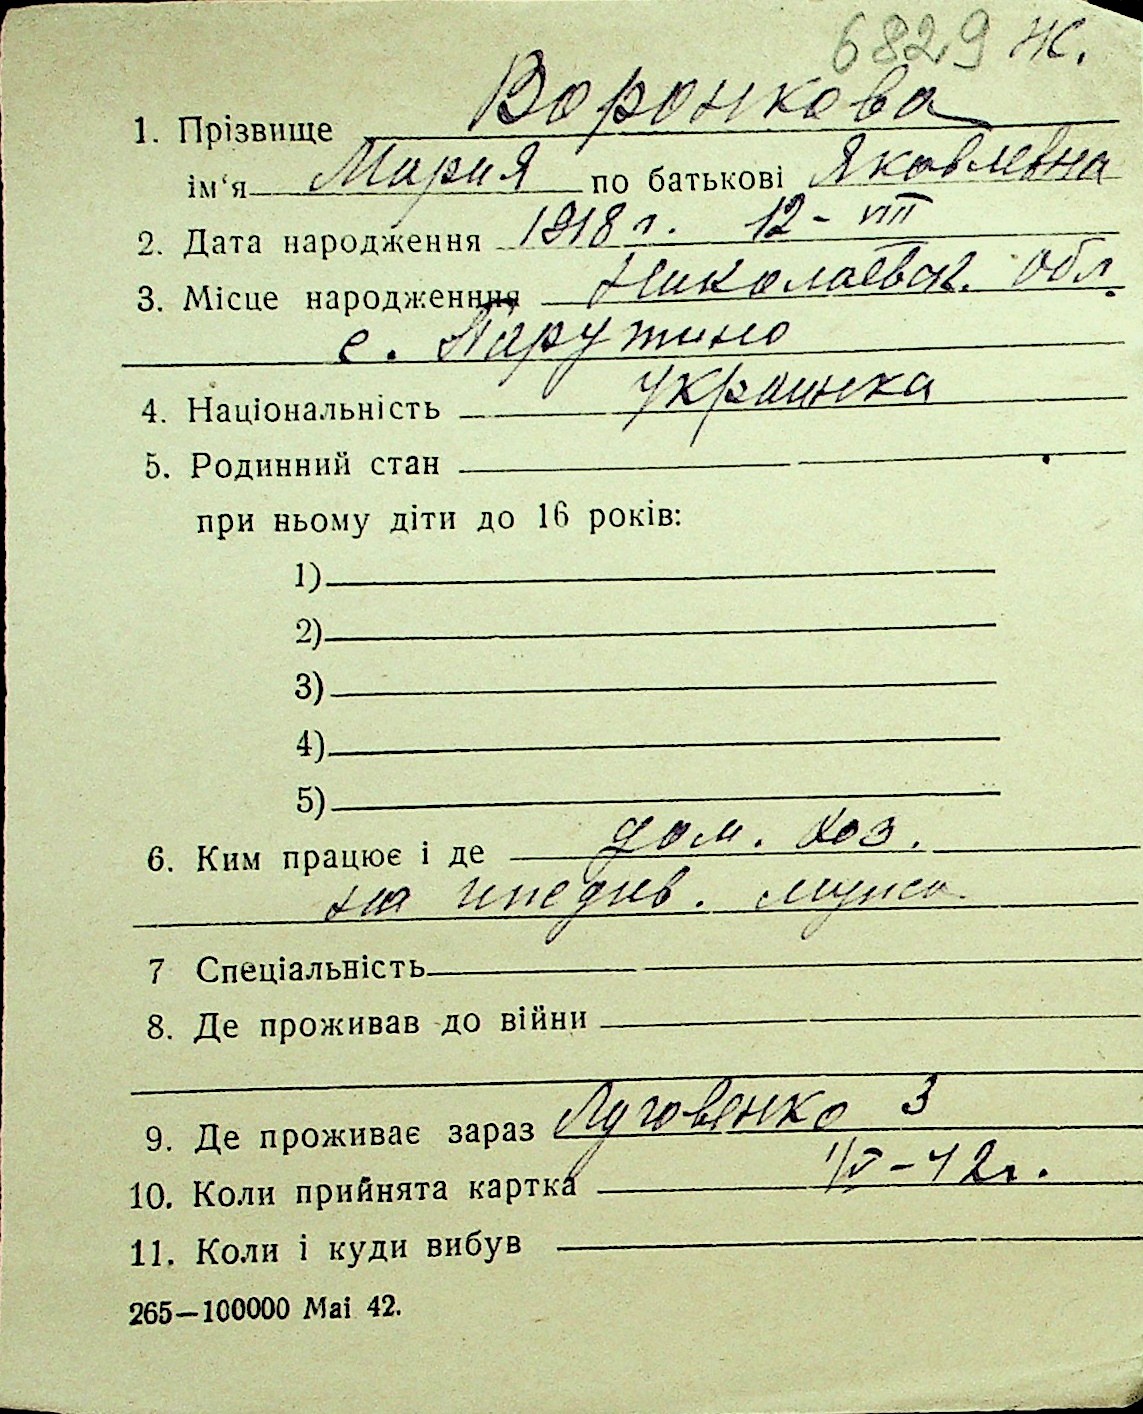 6829 Ж.
1. Прізвище Воронкова
ім'я Мария по батькові Яковлевна
2. Дата народження 1918 г. 12 - VIII
3. Місце народженння Николаевск. обл.
с. Парутино
4. Національність украинка
5. Родинний стан
при ньому діти до 16 років:
1)
2)
3)
4)
5)
6. Ким працює і де дом. хоз.
на иждив. мужа
7 Спеціальність
8. Де проживав до війни
9. Де проживає зараз 3
10. Коли прийнята картка 1/V-42г.
11. Коли і куди вибув
265—100000 Mai 42.